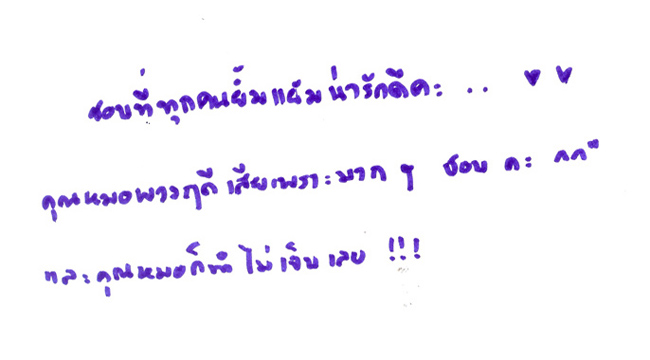 ชอบที่ทุกคนยิ้มแย้มน่ารักดีคะ .. ♥ ♥
คุณหมอพวงฤดี เสียงเพราะมาก ๆ ชอบ คะ ^^"
และคุณหมอก็ทำ ไม่เจ็บ เลย !!!